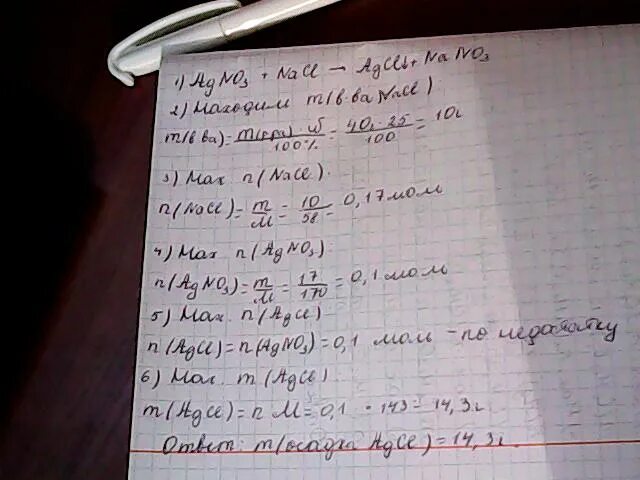 1) AgNO₃ + NaCl → AgCl↓ + NaNO₃
2) Находим m(в-ва NaCl)
m(в-ва) = m(р-ра)·ω / 100% = 40г·25 / 100 = 10г
3) Нах n(NaCl).
n(NaCl) = m/M = 10/58 = 0,17 моль
4) Нах n(AgNO₃)
n(AgNO₃) = m/M = 17/170 = 0,1 моль
5) Нах. n(AgCl)
n(AgCl) = n(AgNO₃) = 0,1 моль - по недостатку
6) Нах. m(AgCl)
m(AgCl) = n M = 0,1 · 143 = 14,3г
Ответ: m(осадка AgCl) = 14,3г.